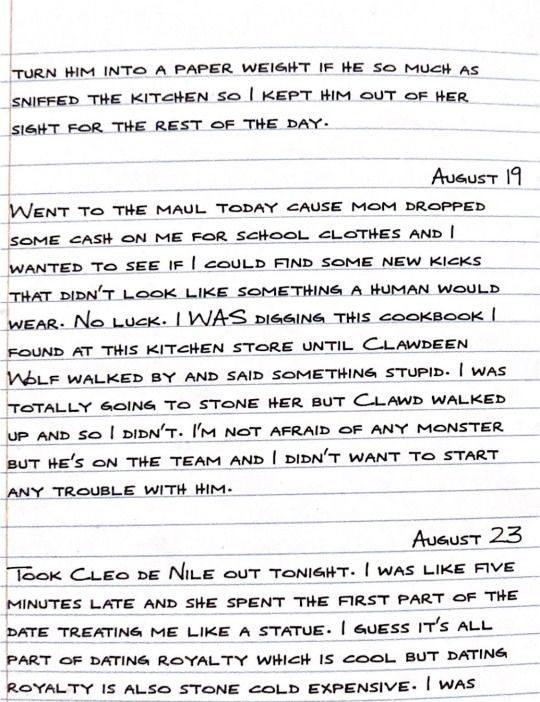 TURN HIM INTO A PAPER WEIGHT IF HE SO MUCH AS
SNIFFED THE KITCHEN SO I KEPT HIM OUT OF HER
SIGHT FOR THE REST OF THE DAY.
AUGUST 19
WENT TO THE MAUL TODAY CAUSE MOM DROPPED
SOME CASH ON ME FOR SCHOOL CLOTHES AND I
WANTED TO SEE IF I COULD FIND SOME NEW KICKS
THAT DIDN'T LOOK LIKE SOMETHING A HUMAN WOULD
WEAR. NO LUCK. I WAS DIGGING THIS COOKBOOK I
FOUND AT THIS KITCHEN STORE UNTIL CLAWDEEN
WOLF WALKED BY AND SAID SOMETHING STUPID. I WAS
TOTALLY GOING TO STONE HER BUT CLAWD WALKED
UP AND SO I DIDN'T. I'M NOT AFRAID OF ANY MONSTER
BUT HE'S ON THE TEAM AND I DIDN'T WANT TO START
ANY TROUBLE WITH HIM.
AUGUST 23
TOOK CLEO DE NILE OUT TONIGHT. I WAS LIKE FIVE
MINUTES LATE AND SHE SPENT THE FIRST PART OF THE
DATE TREATING ME LIKE A STATUE. I GUESS IT'S ALL
PART OF DATING ROYALTY WHICH IS COOL BUT DATING
ROYALTY IS ALSO STONE COLD EXPENSIVE. I WAS